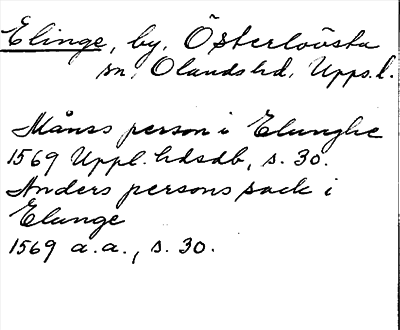 Elinge, by, Österlövsta
sn, Olands hd, Upps. l.
Månss person i Elunghe
1569 Uppl. hdsdb, s. 30.
Anders persons sack i
Elunge
1569 a.a., s. 30.